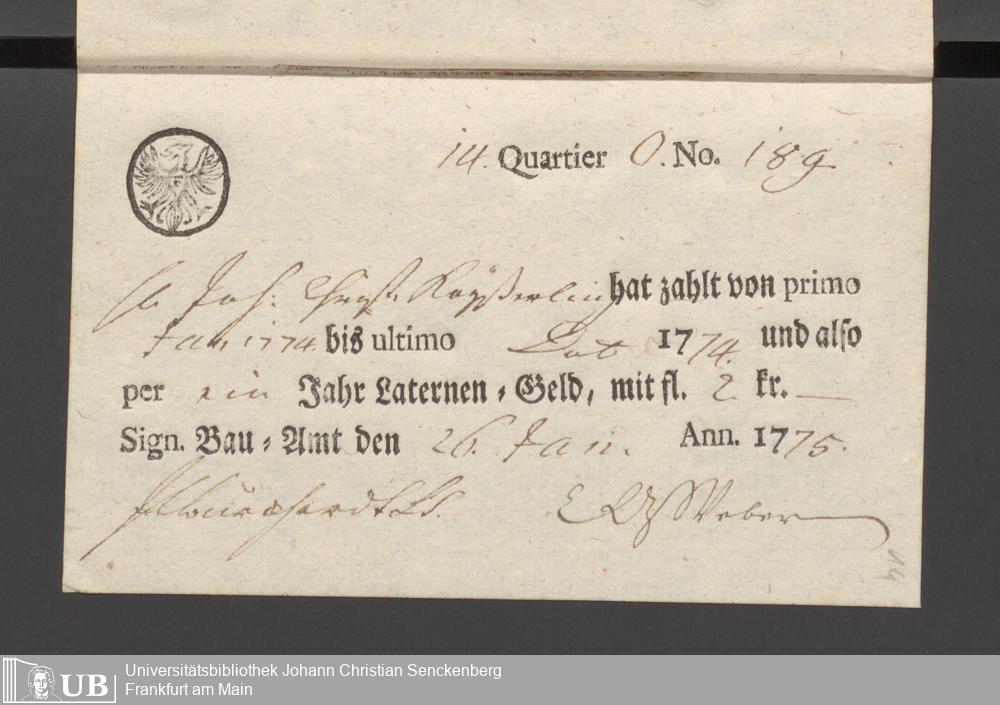 14. Quartier O. No. 189
Joh: Christ. Kayßerling hat zahlt von primo
Jan 1774 bis ultimo 1774. und also
per ein Jahr Laternen-Geld, mit fl. 2 kr. —
Sign. Bau-Amt den 26. Jan. Ann. 1775.
Weber
14
UB
Universitätsbibliothek Johann Christian Senckenberg
Frankfurt am Main